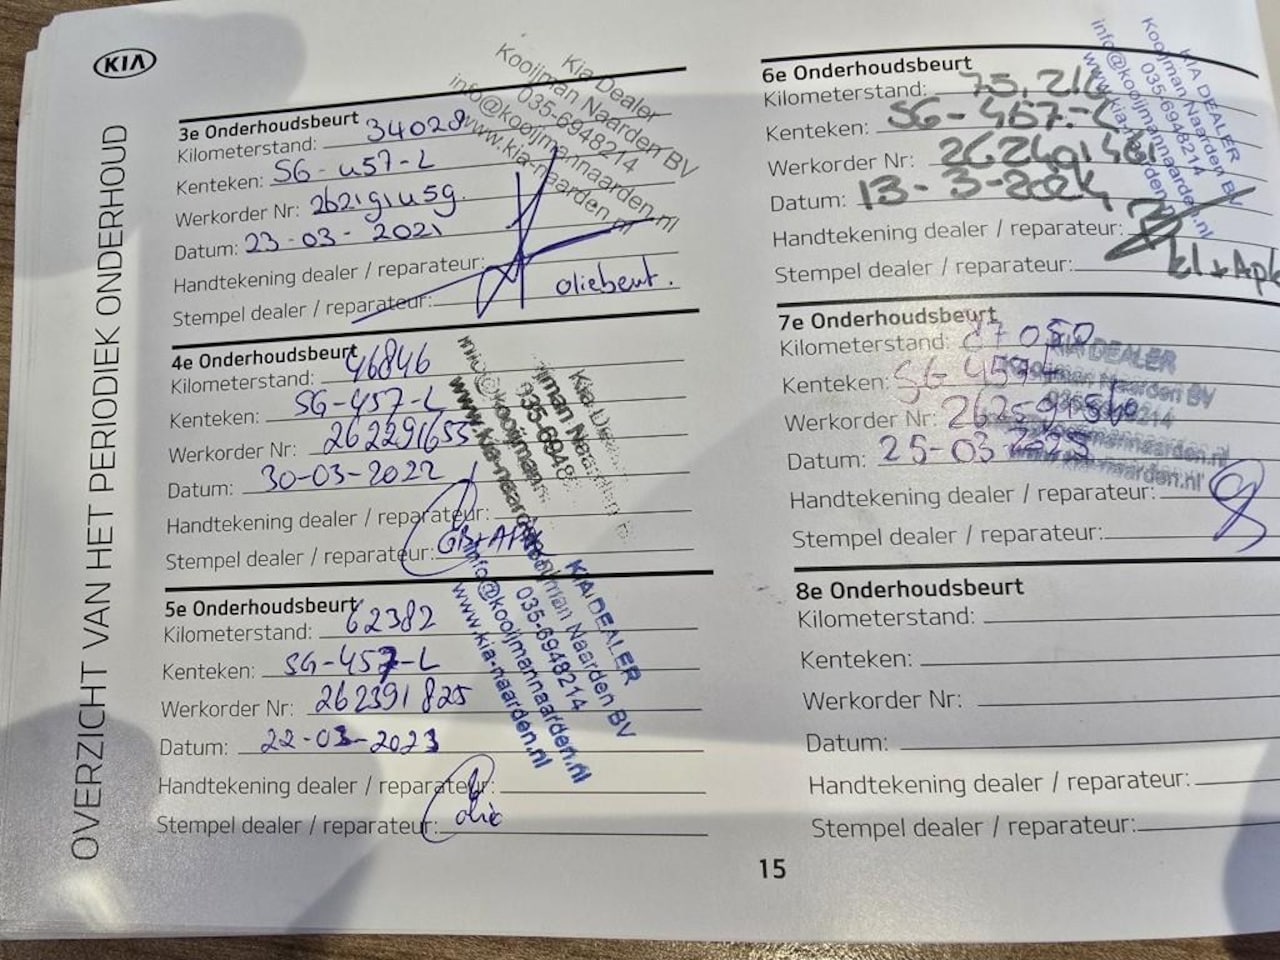 KIA
OVERZICHT VAN HET PERIODIEK ONDERHOUD
3e Onderhoudsbeurt
Kilometerstand: 34028
Kenteken: SG-457-L
Werkorder Nr: 262191459
Datum: 23-03-2021
Handtekening dealer / reparateur:
Stempel dealer / reparateur: oliebeurt.
Kia Dealer
Kooijman Naarden BV
035-6948214
info@kooijmannaarden.nl
www.kia-naarden.nl
4e Onderhoudsbeurt
Kilometerstand: 46846
Kenteken: SG-457-L
Werkorder Nr: 262291653
Datum: 30-03-2022
Handtekening dealer / reparateur:
Stempel dealer / reparateur:
5e Onderhoudsbeurt
Kilometerstand: 62382
Kenteken: SG-457-L
Werkorder Nr: 262391825
Datum: 22-03-2023
Handtekening dealer / reparateur:
Stempel dealer / reparateur: olie
KIA DEALER
Kooijman Naarden BV
035-6948214
info@kooijmannaarden.nl
www.kia-naarden.nl
6e Onderhoudsbeurt
Kilometerstand:
Kenteken: SG-457-L
Werkorder Nr:
Datum: 13-3-2024
Handtekening dealer / reparateur:
Stempel dealer / reparateur:
KIA DEALER
Kooijman Naarden BV
035-6948214
info@kooijmannaarden.nl
www.kia-naarden.nl
7e Onderhoudsbeurt
Kilometerstand: 87050
Kenteken: SG 457 L
Werkorder Nr:
Datum: 25-03 2025
Handtekening dealer / reparateur:
Stempel dealer / reparateur:
KIA DEALER
8e Onderhoudsbeurt
Kilometerstand:
Kenteken:
Werkorder Nr:
Datum:
Handtekening dealer / reparateur:
Stempel dealer / reparateur:
15